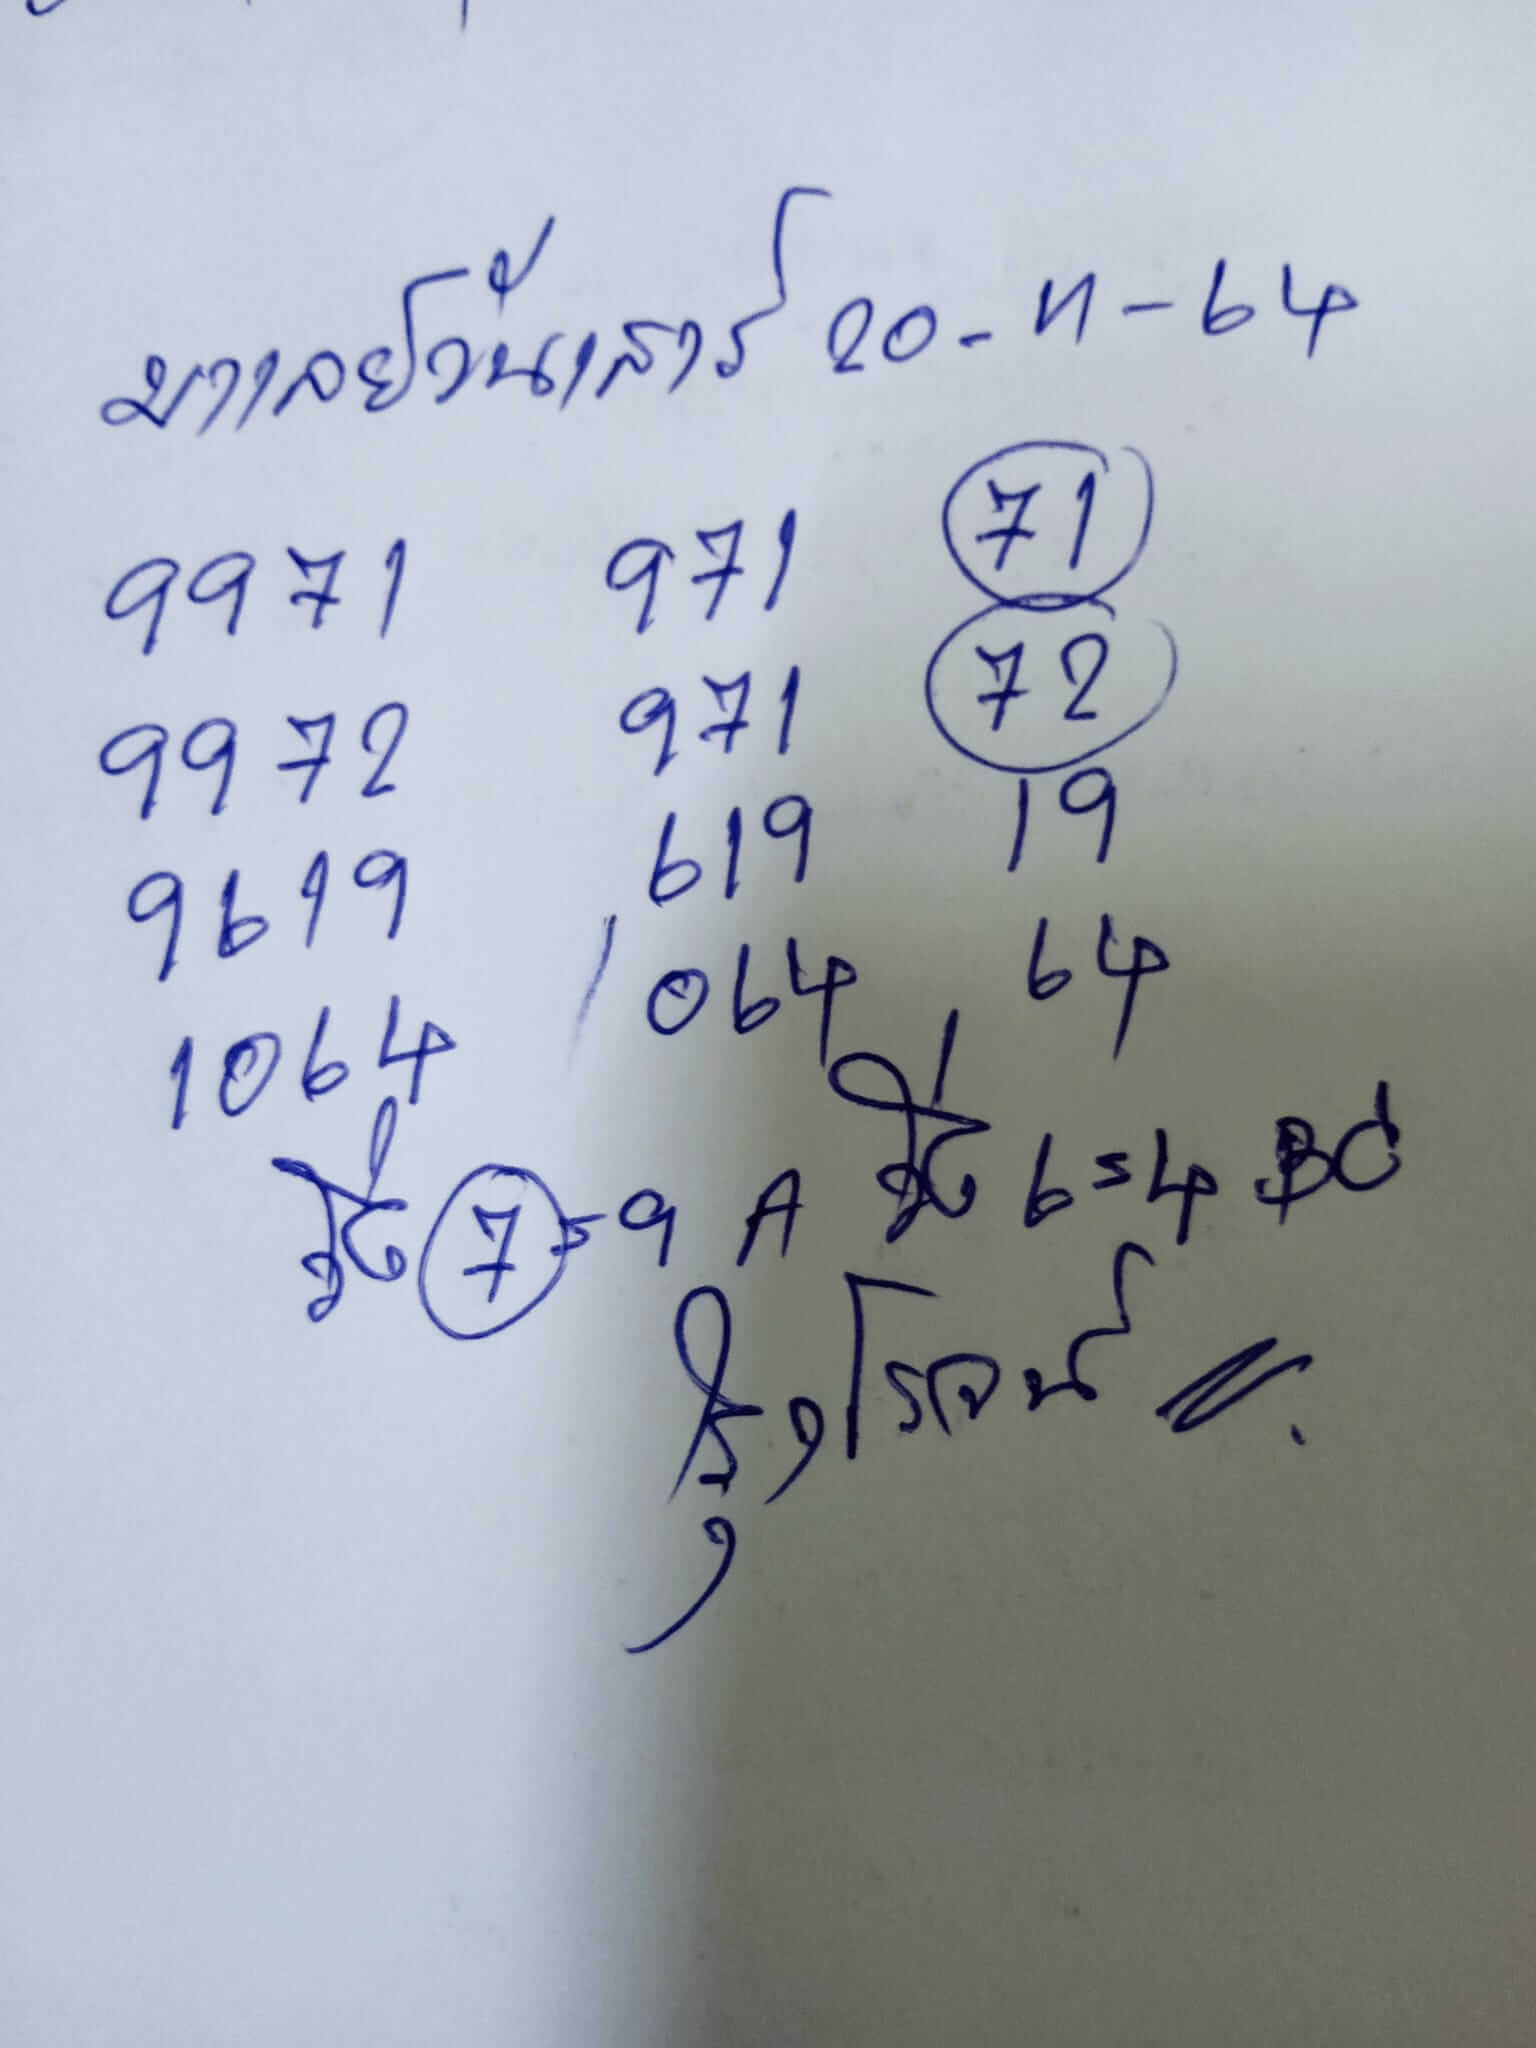 มาเลย์วันเสาร์ 20-11-64
9971 971 71
9972 971 72
9619 619 19
1064 064 64
วิ่ง 7=9 A วิ่ง 6=4 BC
โรจน์